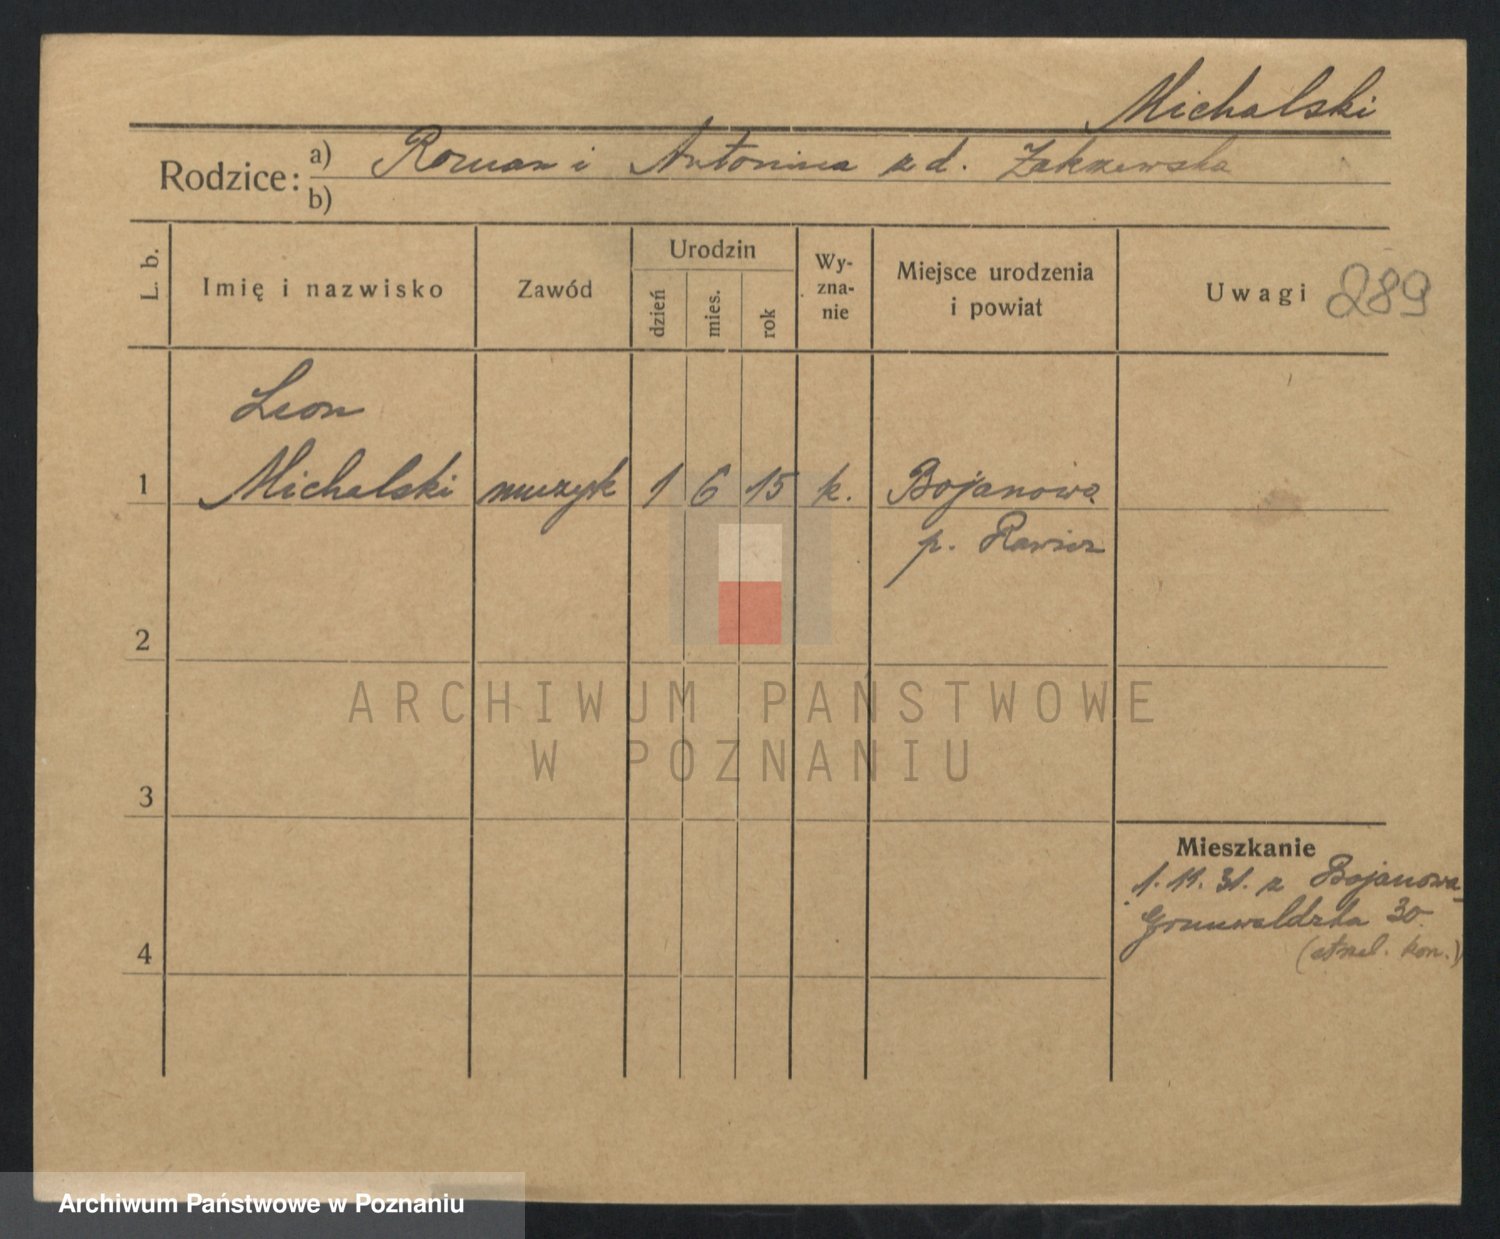 Michalski
Rodzice: a) Roman i Antonina z d. Zakrzewska
b)
L. b.
Imię i nazwisko
Zawód
Urodzin
dzień
mies.
rok
Wy-
zna-
nie
Miejsce urodzenia
i powiat
Uwagi 289
Leon
1 Michalski muzyk 1 6 15 k. Bojanowo
p. Rawicz
2
3
4
Mieszkanie
1. 11. 31. z Bojanowa
Grunwaldzka 30
kon.)
ARCHIWUM PAŃSTWOWE
W POZNANIU
Archiwum Państwowe w Poznaniu